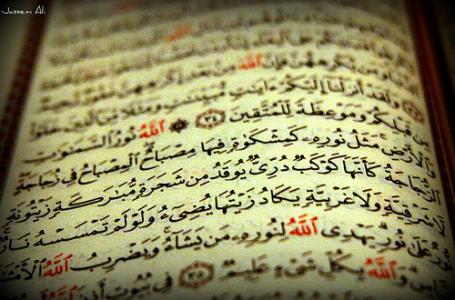 Jassem Ali
ٱللَّهَ مِنۢ بَعْدِ
وَلَقَدْ أَنزَلْنَآ إِلَيْكُمْ ءَايَٰتٍ مُّبَيِّنَٰتٍ وَمَثَلًا مِّنَ ٱلَّذِينَ خَلَوْا۟
مِن قَبْلِكُمْ وَمَوْعِظَةً لِّلْمُتَّقِينَ ﴿٣٤﴾ ۞ ٱللَّهُ نُورُ ٱلسَّمَٰوَٰتِ
وَٱلْأَرْضِ ۚ مَثَلُ نُورِهِۦ كَمِشْكَوٰةٍ فِيهَا مِصْبَاحٌ ۖ ٱلْمِصْبَاحُ فِى زُجَاجَةٍ
ٱلزُّجَاجَةُ كَأَنَّهَا كَوْكَبٌ دُرِّىٌّ يُوقَدُ مِن شَجَرَةٍ مُّبَٰرَكَةٍ زَيْتُونَةٍ
لَّا شَرْقِيَّةٍ وَلَا غَرْبِيَّةٍ يَكَادُ زَيْتُهَا يُضِىٓءُ وَلَوْ لَمْ تَمْسَسْهُ نَارٌ
نُّورٌ عَلَىٰ نُورٍ ۗ يَهْدِى ٱللَّهُ لِنُورِهِۦ مَن يَشَآءُ ۚ وَيَضْرِبُ ٱللَّهُ ٱلْأَمْثَ
وَٱللَّهُ بِكُلِّ شَىْءٍ عَلِيمٌ ﴿٣٥﴾ فِى بُيُوتٍ أَذِنَ ٱللَّهُ